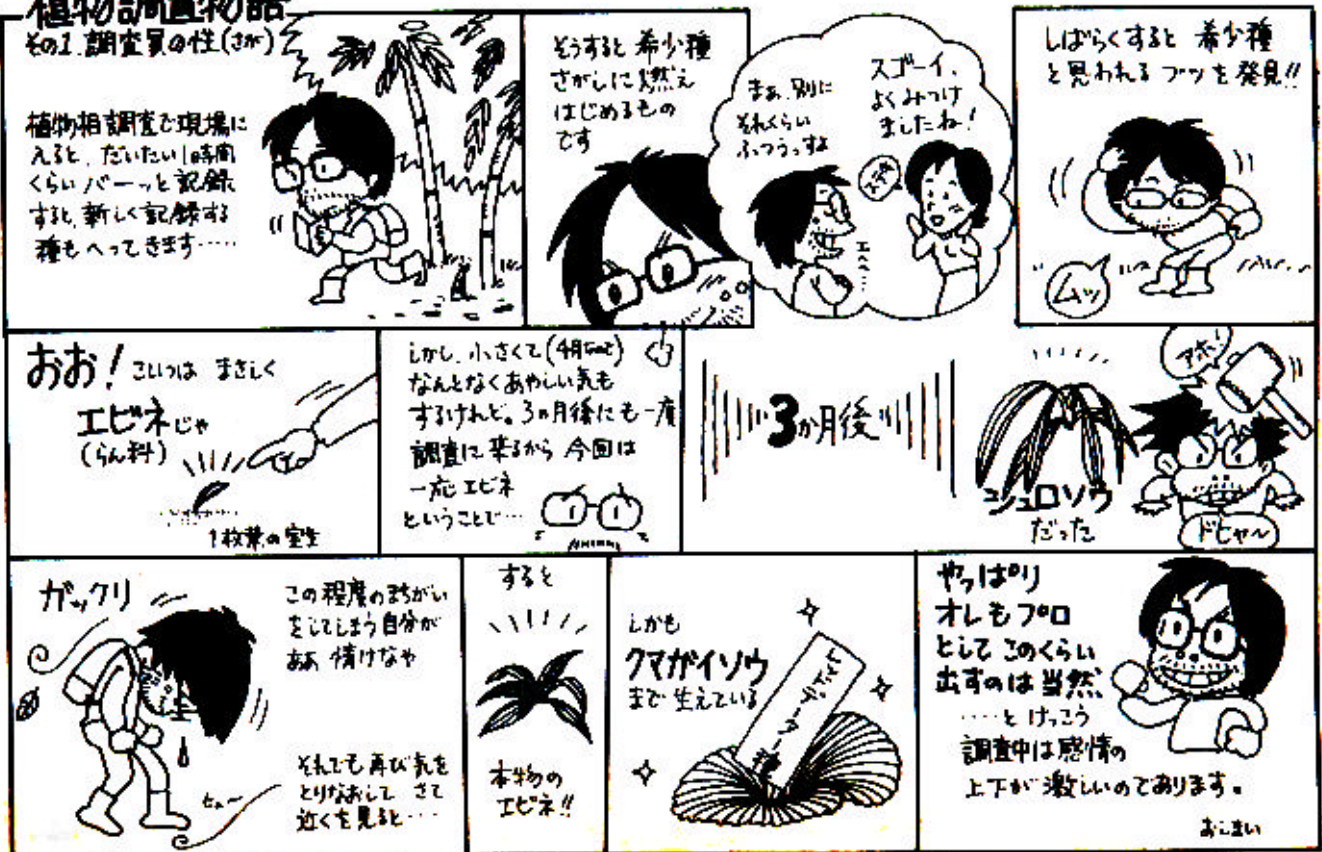 植物調査物語
その1.調査員の性(さが)
植物相調査で現場に
入ると、だいたい1時間
くらいバーっと記録
すると、新しく記録する
種もへってきます……
そうすると 希少種
さがしに燃え
はじめるもの
です
スゴーイ、
よくみつけ
ましたね!
まぁ、別に
それくらい
ふつうっすよ
エヘヘ…
しばらくすると 希少種
と思われるブツを発見!!
ムッ
おお!こいつは まさしく
エビネじゃ
(らん科)
1枚葉の実生
しかし、小さくて(4月なので)
なんとなくあやしい気も
するけれど。3ヵ月後にも一度
調査に来るから 今回は
一応エビネ
ということで…
3か月後
シュロソウ
だった
アホ!
ドヒャ〜
ガックリ
この程度のまちがい
をしてしまう自分が
ああ 情けなや
それでも再び気を
とりなおして さて
近くを見ると‥‥
ヒュ〜
すると
本物の
エビネ!!
しかも
クマガイソウ
まで生えている
レッドデーター種
やっぱり
オレもプロ
としてこのくらい
出すのは当然、
……と けっこう
調査中は感情の
上下が激しいのであります。
おしまい